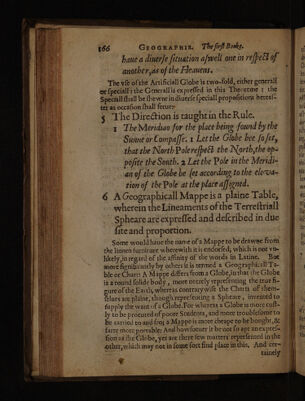 166 GEOGRAPHIE. The first Booke.
haue a diuerse situation aswell one in respect of
another, as of the Heauens.
The vse of the Artificiall Globe is two-fold, either generall
or speciall: the Generall is expressed in this Theoreme: the
Speciall shall be shewne in diuerse speciall propositions hereaf-
ter as occasion shall serue.
5 The Direction is taught in the Rule.
1 The Meridian for the place being found by the
Sunne or Compasse. 1 Let the Globe bee so set,
that the North Pole respect the North, the op-
posite the South. 2 Let the Pole in the Meridi-
an of the Globe be set according to the eleva-
tion of the Pole at the place assigned.
6 A Geographicall Mappe is a plaine Table,
wherein the Lineaments of the Terrestriall
Spheare are expressed and described in due
site and proportion.
Some would haue the name of a Mappe to be drawne from
the linnen furniture wherewith it is endorsed, which is not vn-
likely, in regard of the affinity of the words in Latine. But
more significantly by others it is termed a Geographicall Ta-
ble or Chart: A Mappe differs from a Globe, in that the Globe
is a round solide body, more neerely representing the true fi-
gure of the Earth, whereas contrarywise the Charts of them-
selues are plaine, though representing a Spheare, inuented to
supply the want of a Globe. For whereas a Globe is more cost-
ly to be procured of poore Students, and more troublesome to
be carried to and fro; a Mappe is more cheape to be bought, &
farre more portable: And howsoeuer it be not so apt an expres-
sion as the Globe, yet are there few matters represented in the
other, which may not in some sort find place in this. And cer-
tainely